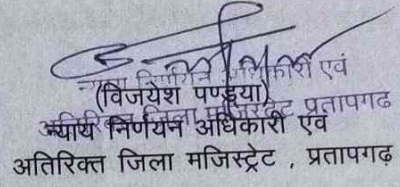 न्याय निर्णयन अधिकारी एवं
(विजयेश पण्ड्या)
अतिरिक्त जिला मजिस्ट्रेट प्रतापगढ
न्याय निर्णयन अधिकारी एवं
अतिरिक्त जिला मजिस्ट्रेट , प्रतापगढ़